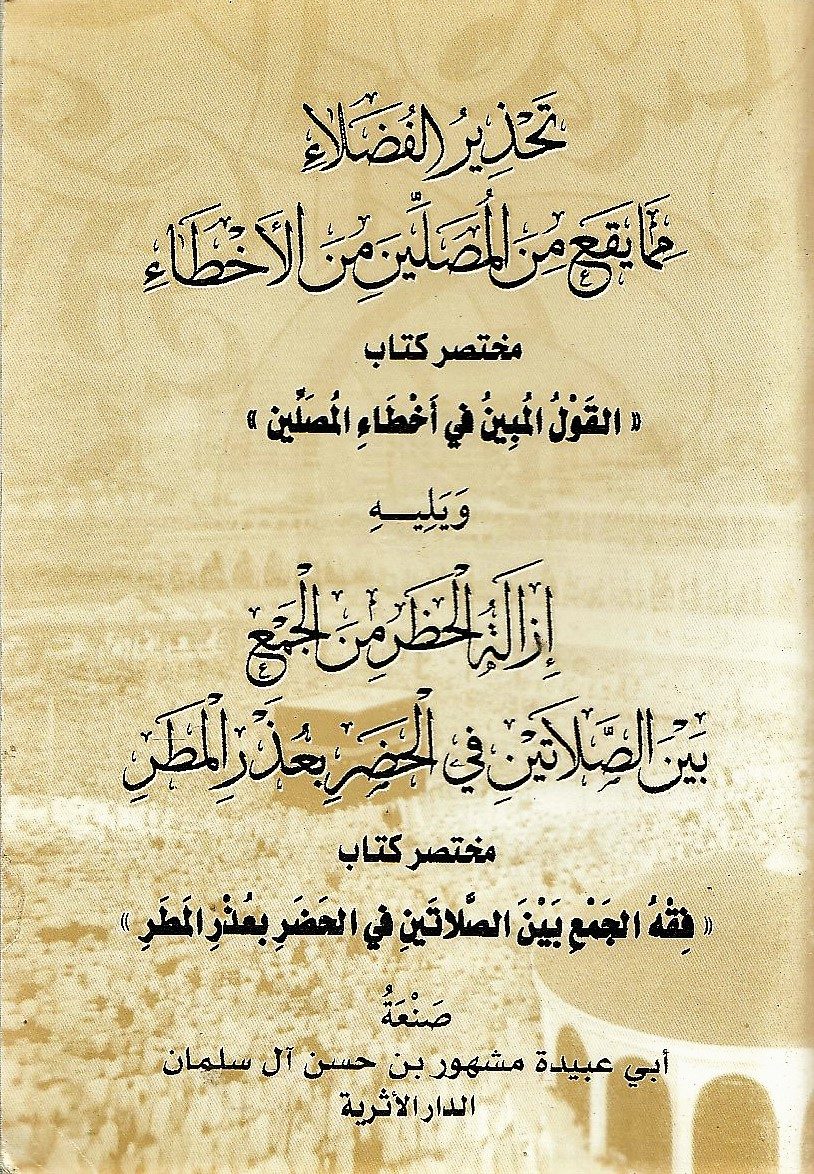 تَحْذِيرُ الفُضَلَاءِ
مِمَّا يَقَع مِنَ المُصَلِّينَ مِنَ الأَخْطَاءِ
مختصر كتاب
« القَوْلُ المُبِينُ في أَخْطَاءِ المُصَلِّين »
وَيَلِيـــهِ
إِزَالَةُ الحَظَرِ مِنَ الجَمْعِ
بَيْنَ الصَّلَاتَيْنِ فِي الحَضَرِ بِعُذْرِ المَطَرِ
مختصر كتاب
« فِقْهُ الجَمْعِ بَيْنَ الصَّلاتَينِ في الحَضَرِ بعُذْرِ المَطَرِ »
صَنْعَةُ
أبي عبيدة مشهور بن حسن آل سلمان
الدار الأثرية